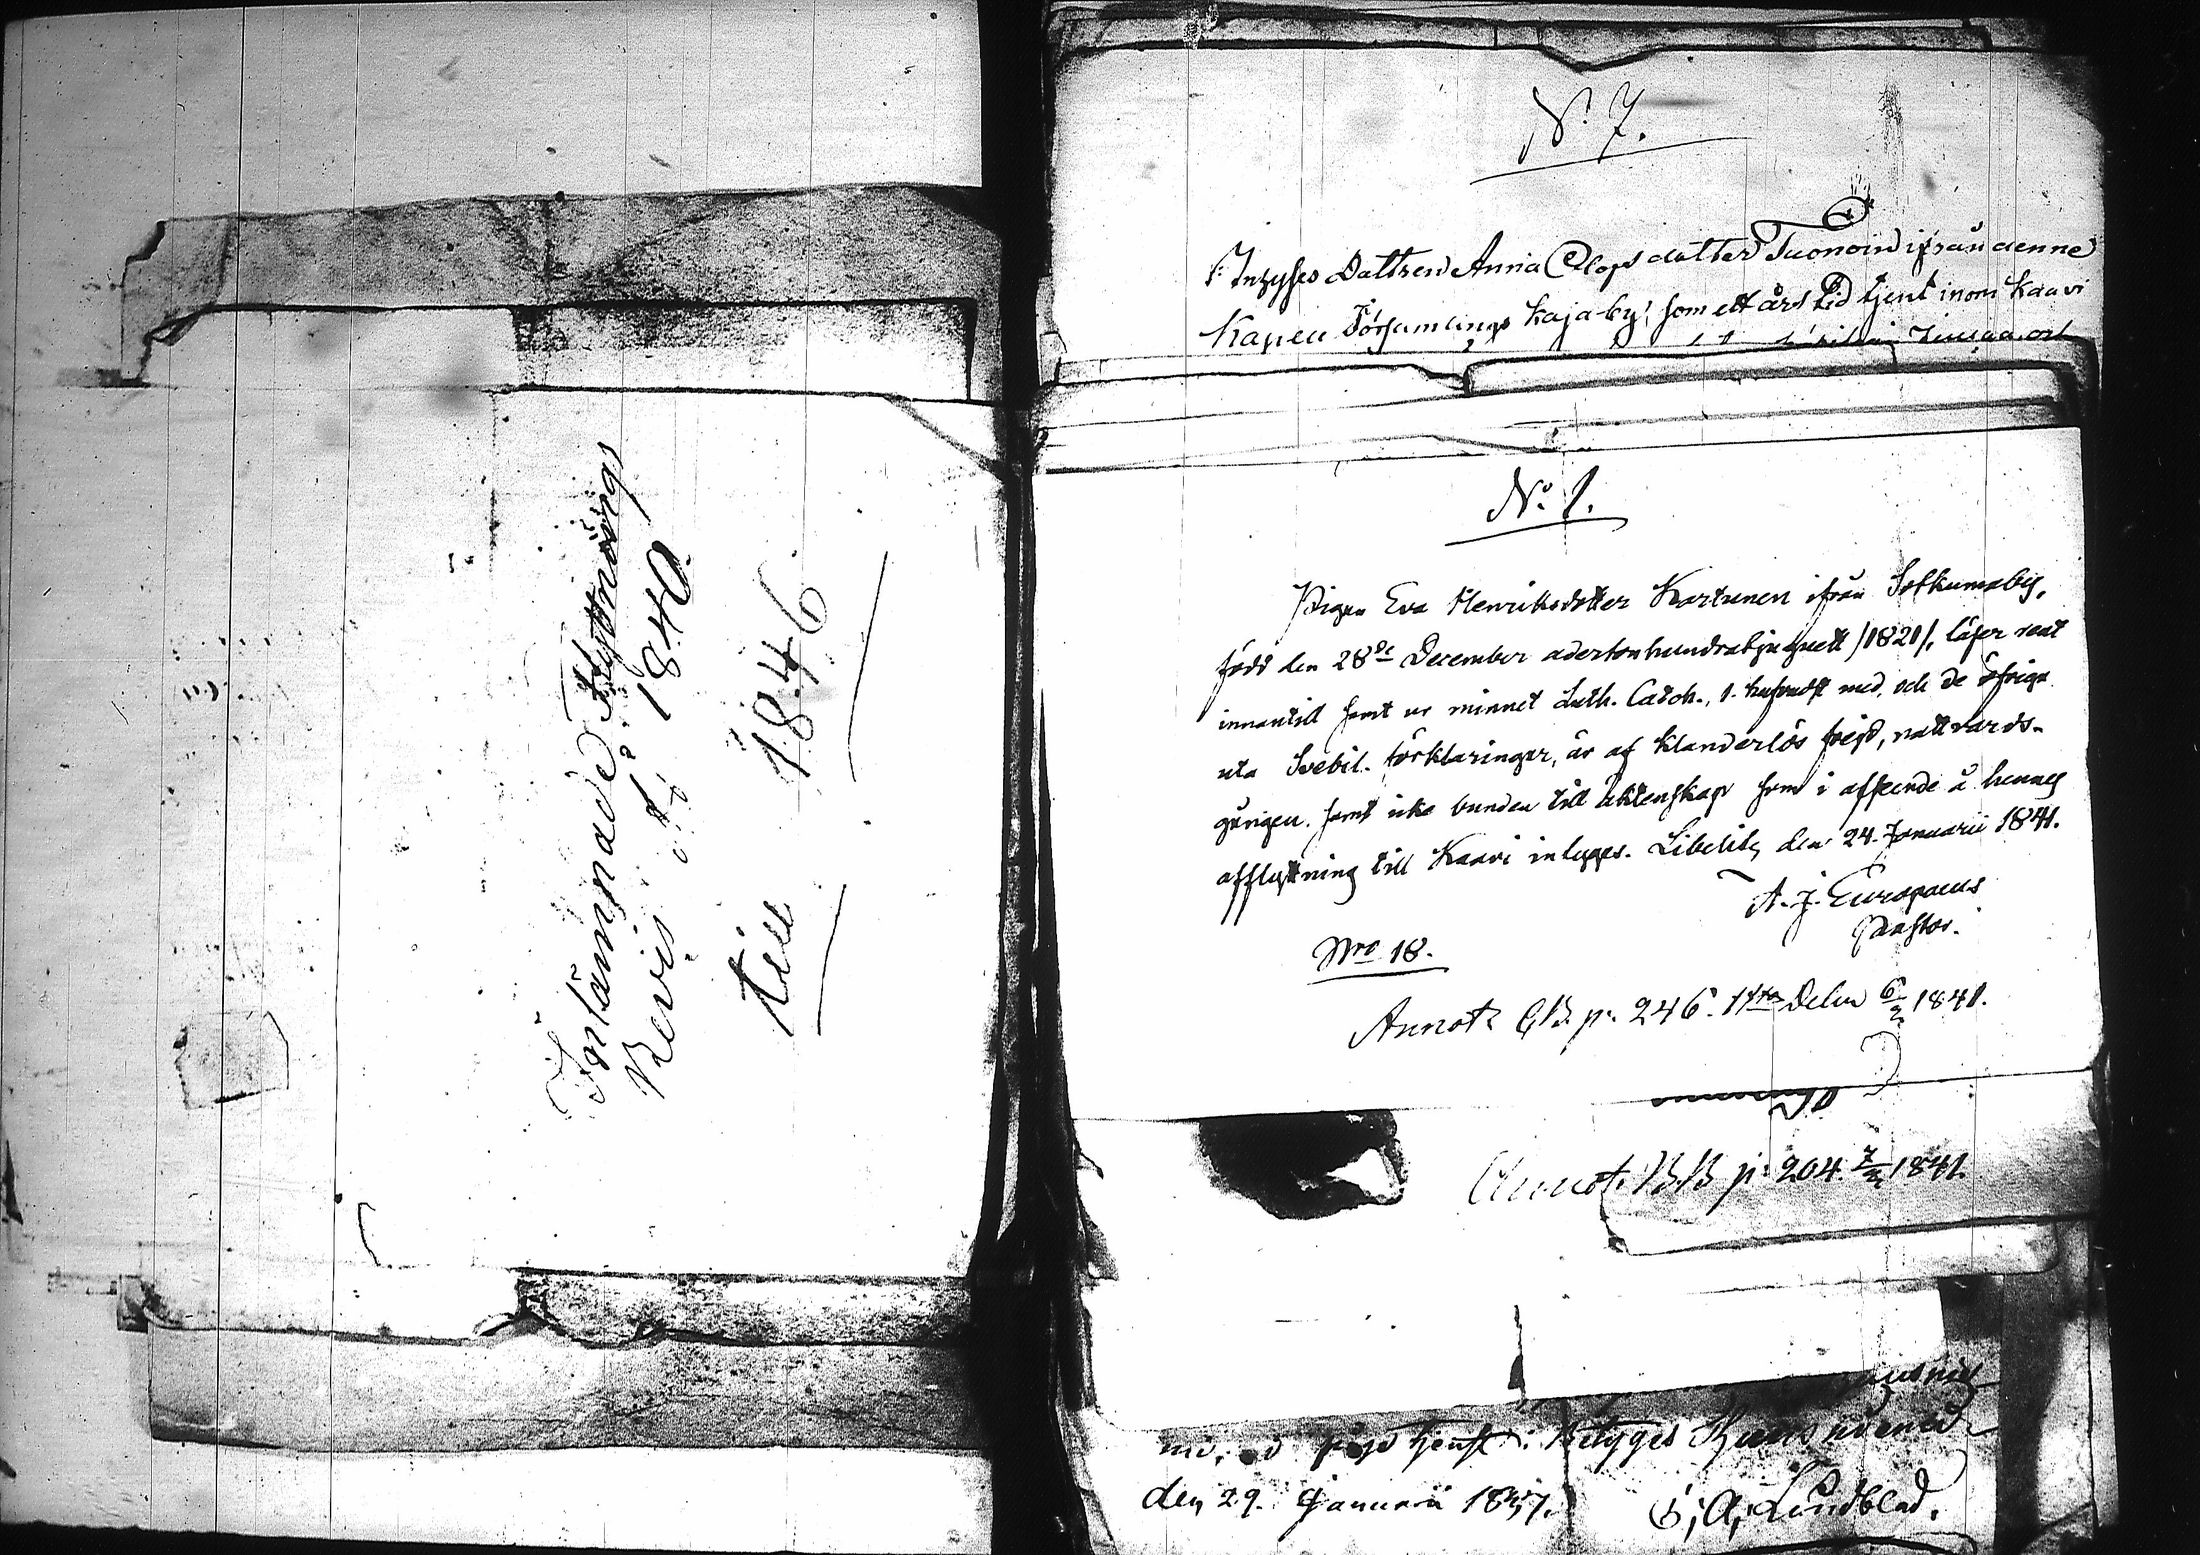 Förlämnade Flyttnings
Revis ifr. Ao 1840.
till 1846
No 7.
Inhyses Dottren Anna Olofsdotter Tuonoin ifrån denne
Kapell Församlings Kaja by, som ett års tid tjent inom Kaavi
No 1.
Pigan Eva Henriksdotter Kartunen ifrån Sotkumaby,
född den 28de December adertonhundratjuguett /1821/, läser rent
innantill samt ur minnet Luth. Catch., 1. hufvudst med, och de öfriga
uta Svebil. förklaringar, är af klanderlös frejd, nattvards-
gången samt icke bunden till äktenskap som i afseende å hennes
afflyttning till Kaavi intygas. Libelitz den 24. Januarii 1841.
A. J. Europaeus
Pastor.
Nro 18.
Annot: C.B. p: 246. 1sta Delen 6/2 1841.
Annot. B.B. p: 204. 7/2 1841.
tjenst: betygas
den 29. Januarii 1841.
G. A. Lundblad.